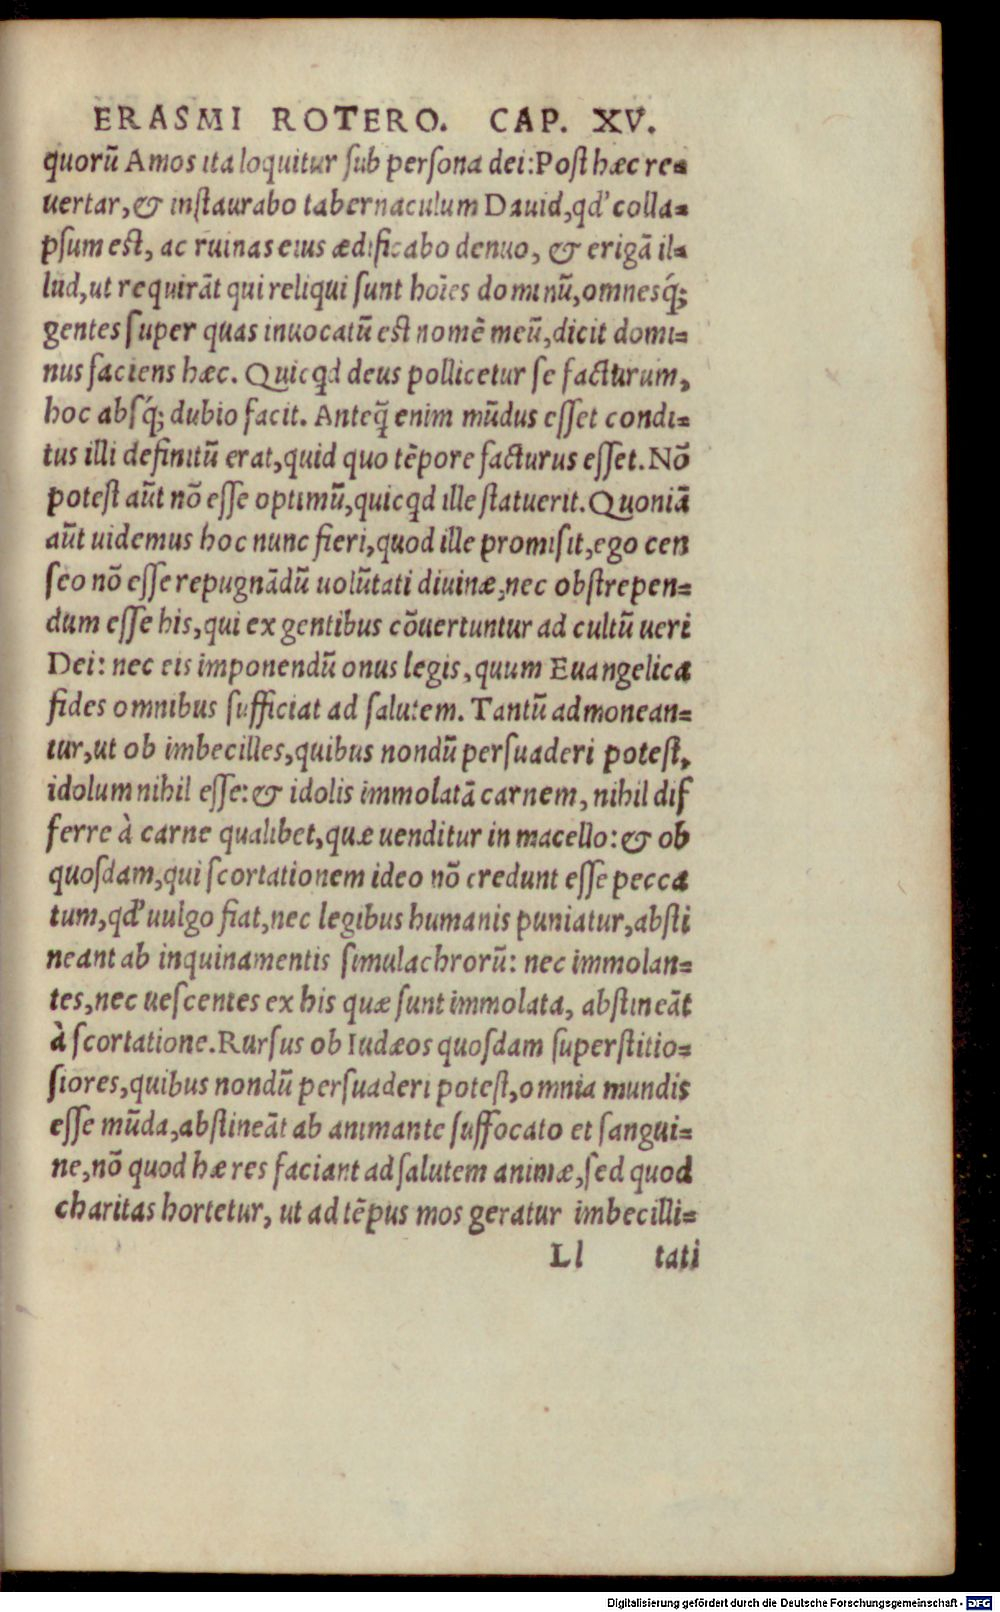 ERASMI ROTERO. CAP. XV.
quorū Amos ita loquitur ſub perſona dei: Poſt hæc re=
uertar, & inſtaurabo tabernaculum Dauid, qd' colla=
pſum eſt, ac ruinas eius ædificabo denuo, & erigā il=
lud, ut requirāt qui reliqui ſunt hoīes dominū, omnesq́;
gentes ſuper quas inuocatū eſt nomē meū, dicit domi=
nus faciens hæc. Quicqd deus pollicetur ſe facturum,
hoc abſq́; dubio facit. Anteq̄ enim mūdus eſſet condi=
tus illi definitū erat, quid quo tēpore facturus eſſet. Nō
poteſt aūt nō eſſe optimū, quicqd ille ſtatuerit. Quoniā
aūt uidemus hoc nunc fieri, quod ille promiſit, ego cen
ſeo nō eſſe repugnādū uolūtati diuinæ, nec obſtrepen=
dum eſſe his, qui ex gentibus cōuertuntur ad cultū ueri
Dei: nec eis imponendū onus legis, quum Euangelica
fides omnibus ſufficiat ad ſalutem. Tantū admonean=
tur, ut ob imbecilles, quibus nondū perſuaderi poteſt,
idolum nihil eſſe: & idolis immolatā carnem, nihil dif
ferre à carne qualibet, quæ uenditur in macello: & ob
quoſdam, qui ſcortationem ideo nō credunt eſſe pecca
tum, qd' uulgo fiat, nec legibus humanis puniatur, abſti
neant ab inquinamentis ſimulachrorū: nec immolan=
tes, nec ueſcentes ex his quæ ſunt immolata, abſtineāt
à ſcortatione. Rurſus ob Iudæos quoſdam ſuperſtitio=
ſiores, quibus nondū perſuaderi poteſt, omnia mundis
eſſe mūda, abſtineāt ab animante ſuffocato et ſangui=
ne, nō quod hæ res faciant ad ſalutem animæ, ſed quod
charitas hortetur, ut ad tēpus mos geratur imbecilli=
Ll tati
Digitalisierung gefördert durch die Deutsche Forschungsgemeinschaft - DFG